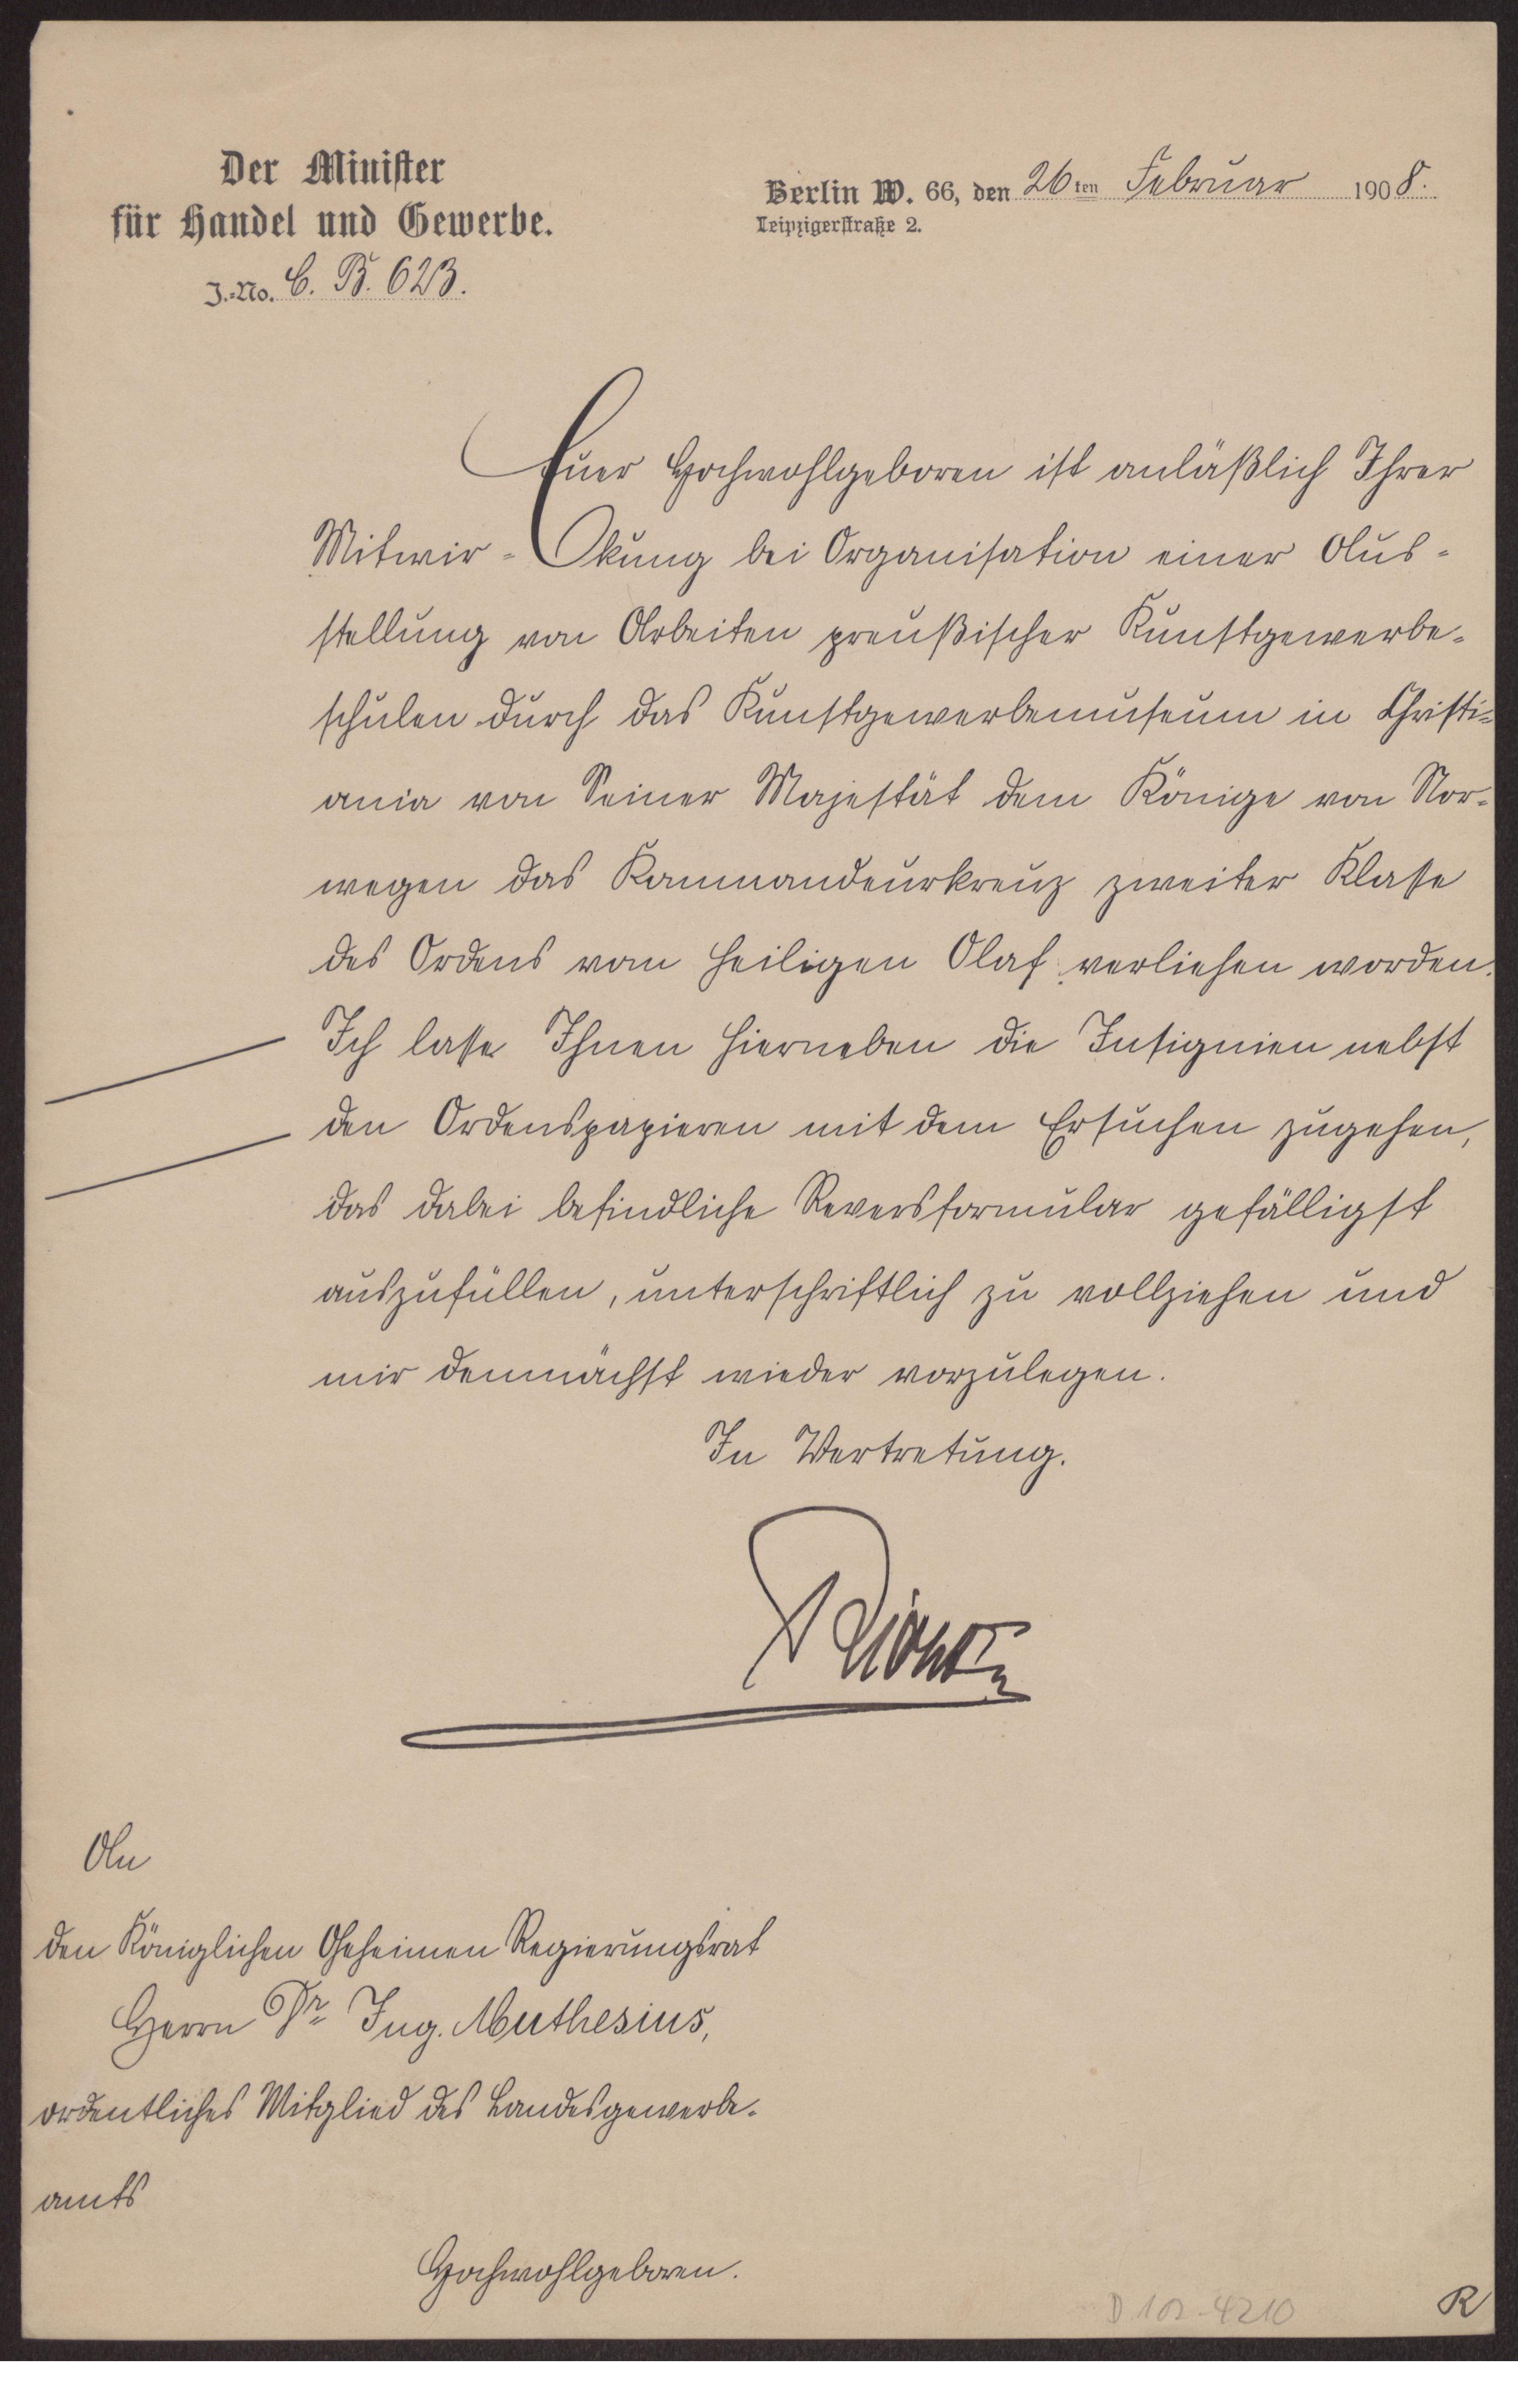 Der Minister
für Handel und Gewerbe.
J.-No. C. B. 623.
Berlin W. 66, den 26ten Februar 1908.
Leipzigerstraße 2.
Euer Hochwohlgeboren ist anläßlich Ihrer
Mitwir-kung bei Organisation einer Aus-
stellung von Arbeiten preußischer Kunstgewerbe-
schulen durch das Kunstgewerbemuseum in Christi-
ania von Seiner Majestät dem Könige von Nor-
wegen das Kommandeurkreuz zweiter Klasse
des Ordens vom Heiligen Olaf verliehen worden.
Ich lasse Ihnen hierneben die Insignien nebst
den Ordenspapieren mit dem Ersuchen zugehen,
das dabei befindliche Reversformular gefälligst
auszufüllen, unterschriftlich zu vollziehen und
mir demnächst wieder vorzulegen.
In Vertretung.
An
den Königlichen Geheimen Regierungsrat
Herrn Dr. Ing. Muthesius,
ordentliches Mitglied des Landesgewerbe-
amts
Hochwohlgeboren.
D 102-4210
R